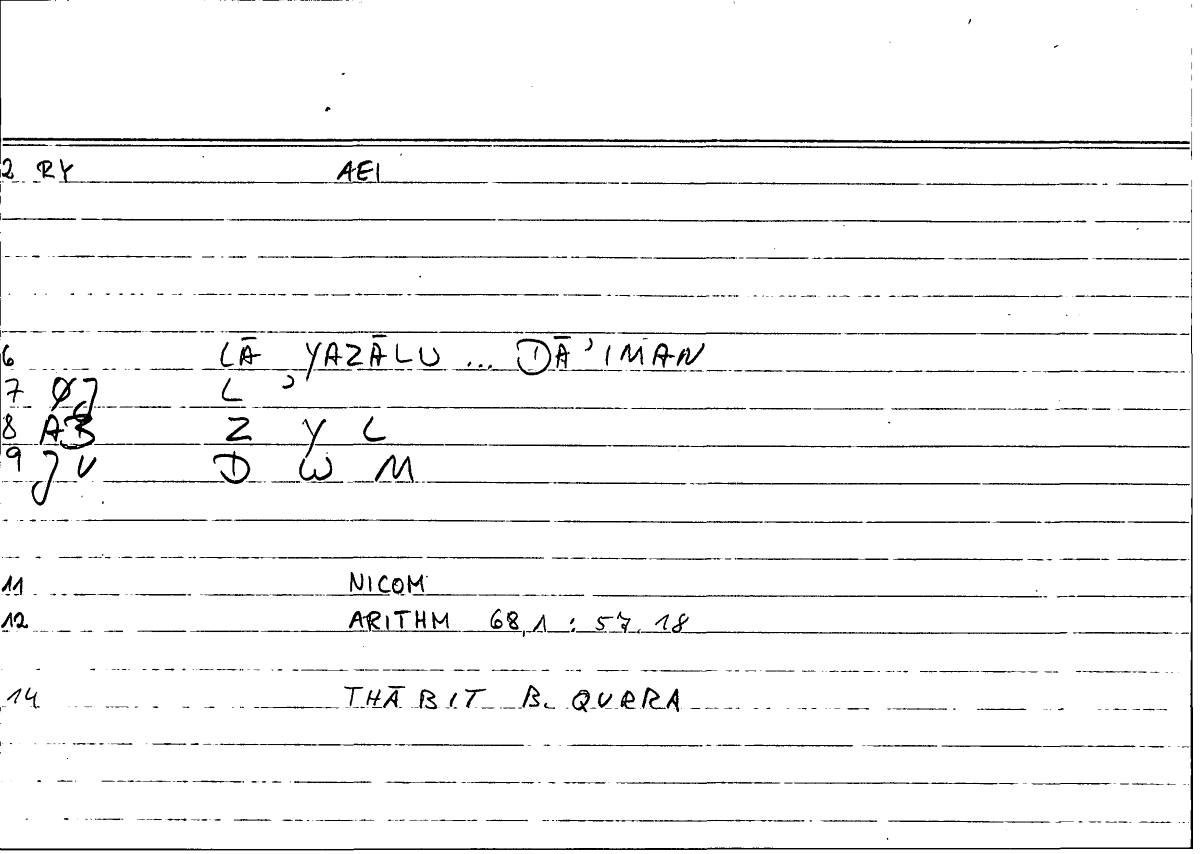 2 RY AEI
6 LĀ YAZĀLU ... DĀʾIMAN
7 ØJ L ʾ
8 AB Z Y L
9 JV D W M
11 NICOM
12 ARITHM 68,1 : 57.18
14 THĀBIT B. QURRA